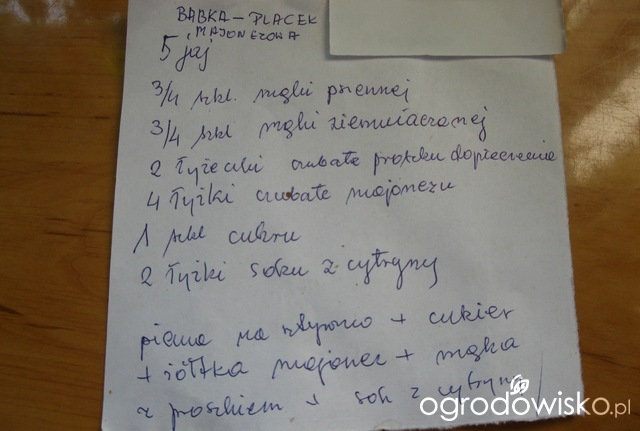 BABKA - PLACEK
MAJONEZOWA
5 jaj
3/4 szkl. mąki pszennej
3/4 szkl mąki ziemniaczanej
2 łyżeczki czubate proszku do pieczenia
4 łyżki czubate majonezu
1 szkl cukru
2 łyżki soku z cytryny
piana na sztywno + cukier
+ żółtka majonez + mąka
z proszkiem + sok z cytryny
ogrodowisko.pl